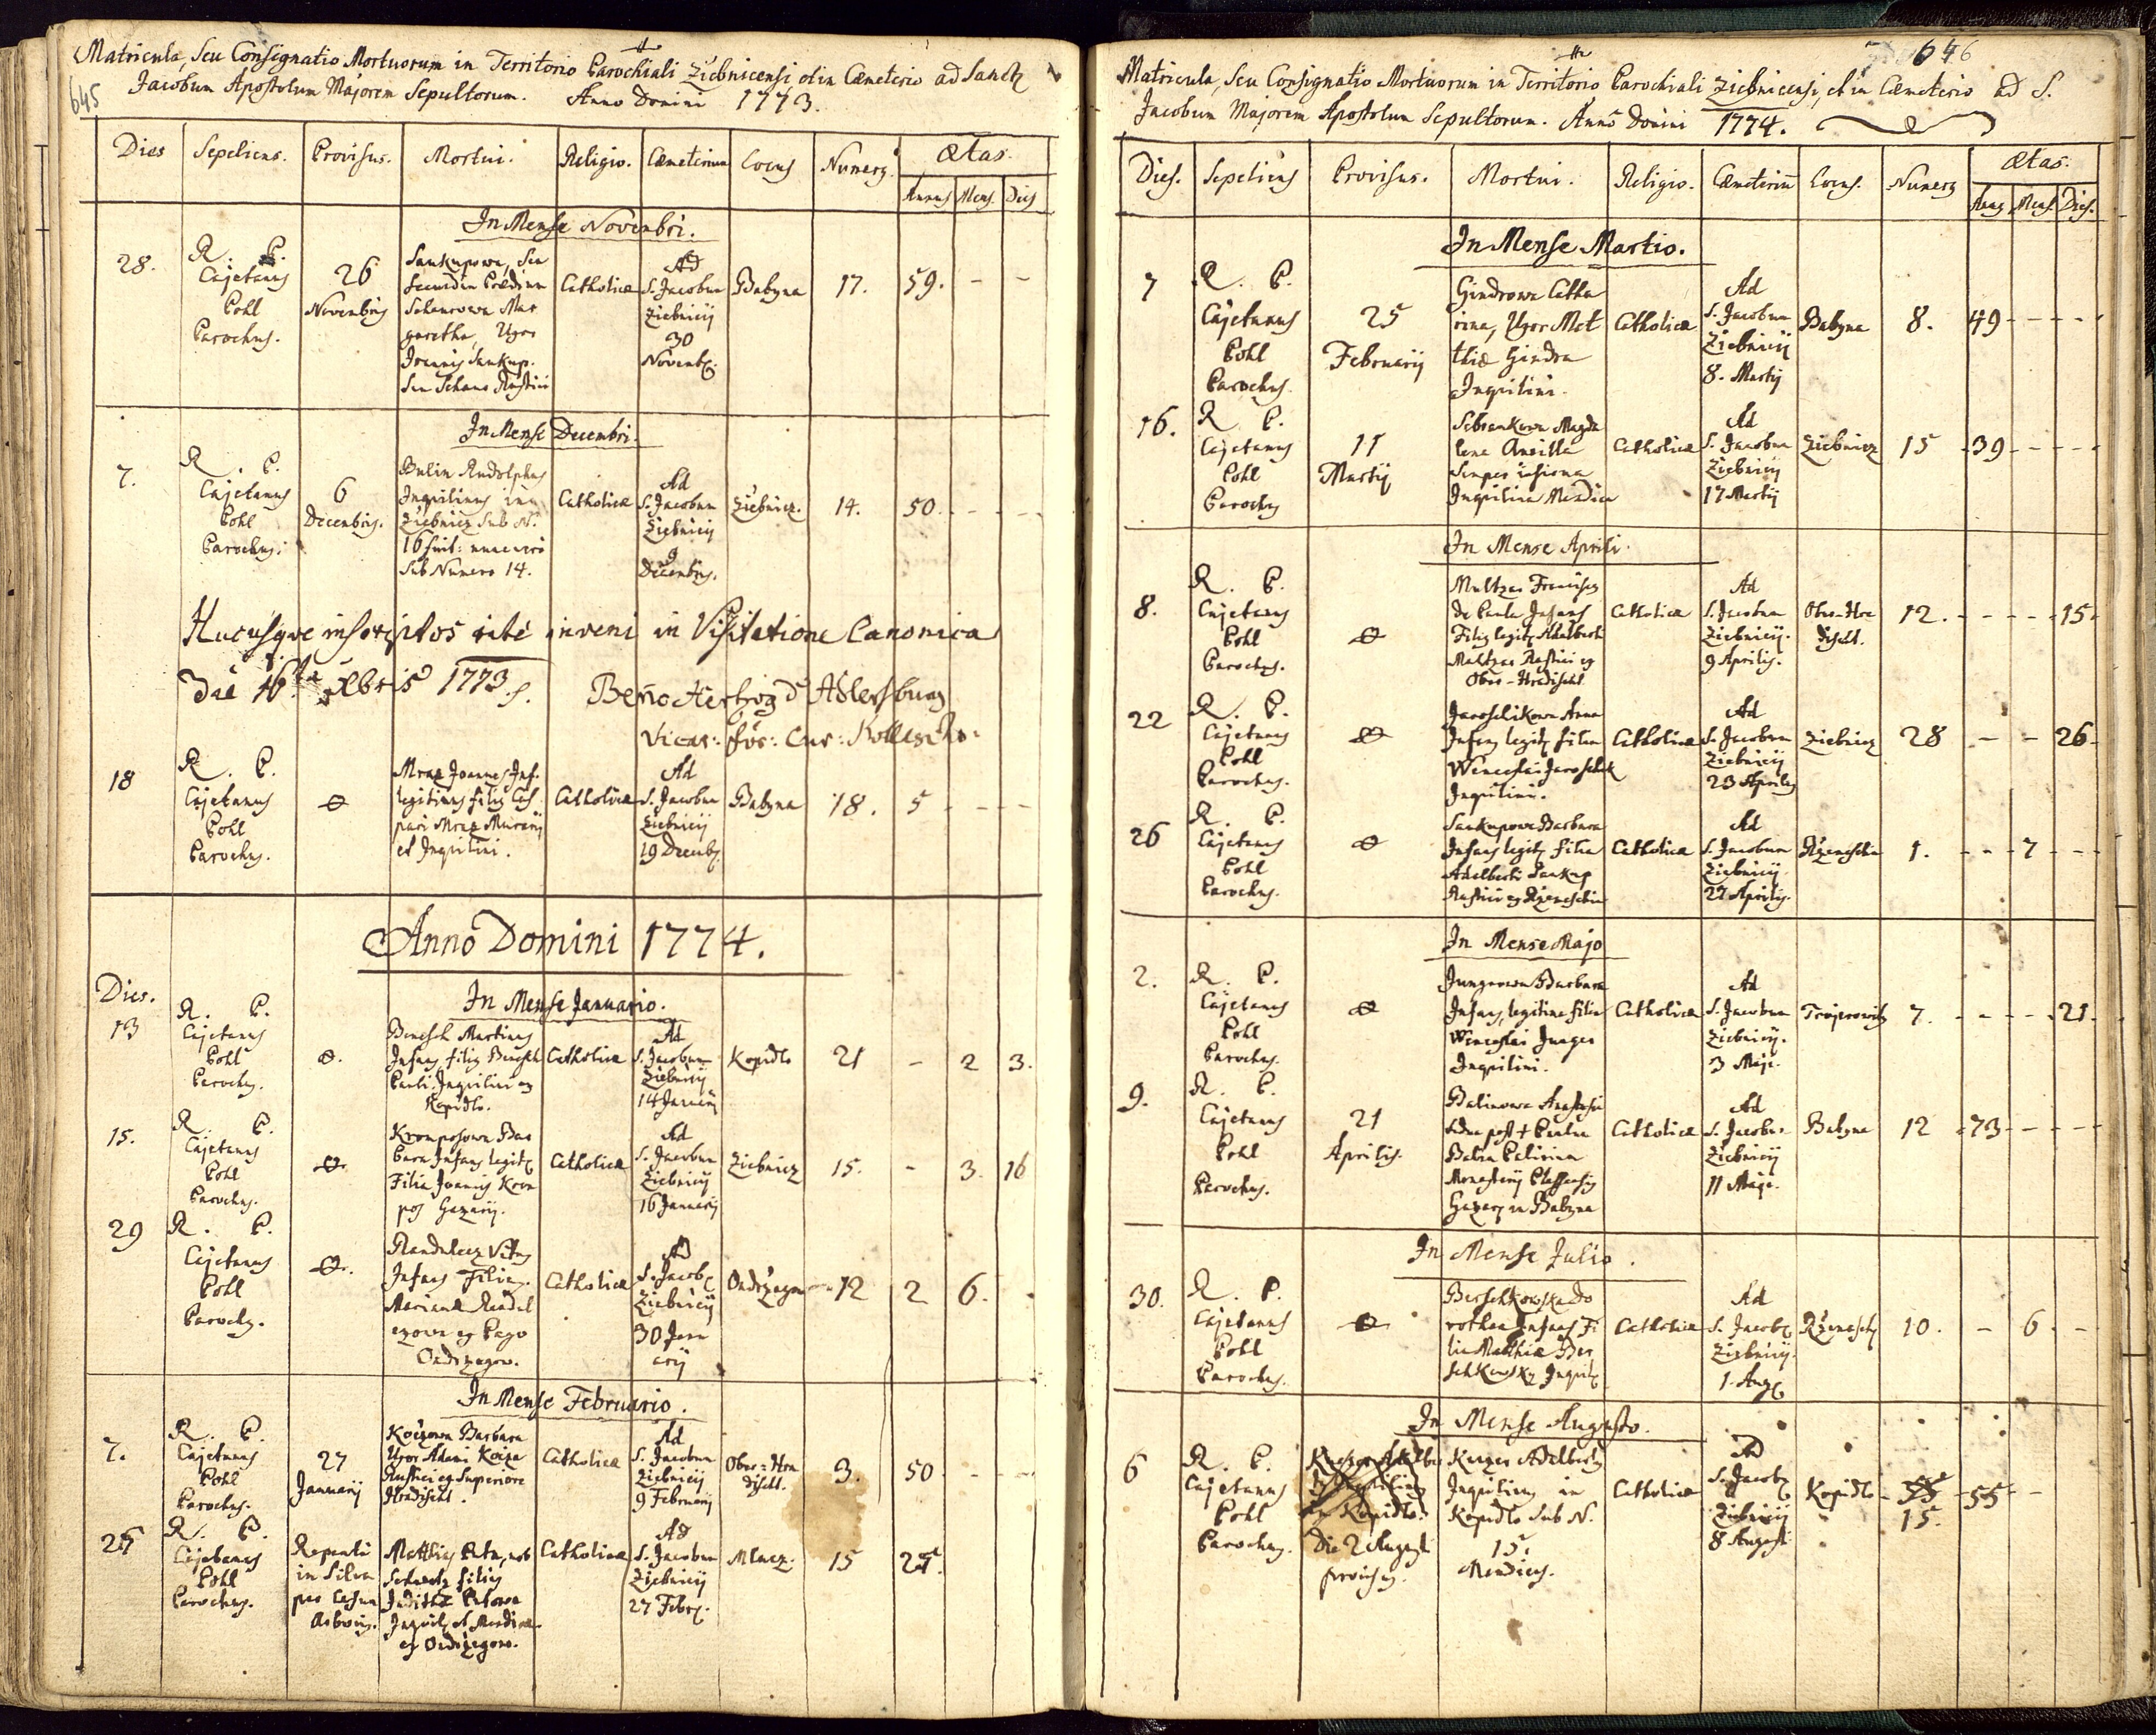 645
Matricula, seu Consignatio Mortuorum in Territorio Parochiali Ziebnicensi, et in Cæmeterio ad Sanct
Jacobum Apostolum Majorem Sepultorum. Anno Domini 1773.
Dies Sepeliens. Provisus. Mortui. Religio. Cæmeterium Locus Numerg. Ætas.
Annus Mens. Dies
In Mense Novembri.
28.
R. P.
Cajetanus
Pohl
Parochus.
26
Novembris
Saukupowa, seu
secundum Prædium
Schanrowa Mar
garetha, Uxor
Joannis Saukup.
seu Schanro Rustici
Catholica
Ad
S. Jacobum
Ziebnicij
30
Novemb.
Babyna 17. 59. - -
In Mense Decembri.
7.
R. P.
Cajetanus
Pohl
Parochus.
6
Decembris.
Bulin Rudolphus
Inquilinus in
Ziebnicz sub N.
16 fuit: nunc vero
sub Numero 14.
Catholica
Ad
S. Jacobum
Ziebnicij
9
Decembris.
Ziebnicz. 14. 50. - -
Hucusque inscriptos ritè inveni in Visitatione Canonica
Die 16ta Xbris 1773.
Beno Hertzog d'Adlersburg
Vicar: for:
18
R. P.
Cajetanus
Pohl
Parochus.
Mraz Joannes Inf.
legitimus filius Cas
pari Mraz Murarij
et Inquilini.
Catholica
Ad
S. Jacobum
Ziebnicij
19 Decemb.
Babyna 18. 5 - -
Anno Domini 1774.
Dies.
In Mense Januario.
13
R. P.
Cajetanus
Pohl
Parochus.
Benesch Martinus
Infans filius Benesch
Pauli Inquilini ex
Kopidlo.
Catholica
Ad
S. Jacobum
Ziebnicij
14 Januarij
Kopidlo 21 - 2 3.
15.
R. P.
Cajetanus
Pohl
Parochus.
Kromposowa Bar
bara Infans legit.
Filia Joannis Krom
pos
Catholica
Ad
S. Jacobum
Ziebnicij
16 Januarij
Ziebnicz 15. - 3. 16
29
R. P.
Cajetanus
Pohl
Parochus.
Randulecz Vitus
Infans Filius
Marianæ Randul
ezowa ex Pago
Ondrzegow.
Catholica
Ad
S. Jacob.
Ziebnicij
30 Janu
arij
Ondrzegow 12 2 6.
In Mense Februario.
7.
R. P.
Cajetanus
Pohl
Parochus.
27
Januarij
Koczowa Barbara
Uxor Adami Kocza
Rustici ex Superiore
Hradischt.
Catholica
Ad
S. Jacobum
Ziebnicij
9 Februarij
Ober=Hra
discht.
3. 50. - -
25
R. P.
Cajetanus
Pohl
Parochus.
Repente
in Silva
per Casum
Arboris.
Matthias
filius
Judithæ
et
ex Ondrzegow.
Catholica
Ad
S. Jacobum
Ziebnicij
27 Febr.
Mlacz. 15 25.
646
Matricula, seu Consignatio Mortuorum in Territorio Parochiali Ziebnicensi, et in Cæmeterio ad S.
Jacobum Majorem Apostolum Sepultorum. Anno Domini 1774.
Dies. Sepeliens Provisus. Mortui. Religio. Cæmeterium Locus. Numerg Ætas.
Mens. Dies.
In Mense Martio.
7
R. P.
Cajetanus
Pohl
Parochus.
25
Februarij
Gindrowa Catha
rina, Uxor Mat
thiæ Gindra
Inquilini.
Catholica
Ad
S. Jacobum
Ziebnicij
8. Martij
Babyna 8. 49 - - - -
16.
R. P.
Cajetanus
Pohl
Parochus
11
Martij
Magda
lena Ancilla
semper
Inquilina Mendica
Catholica
Ad
S. Jacobum
Ziebnicij
17 Martij
Ziebnicz 15 39 - - - -
In Mense Aprili.
8.
R. P.
Cajetanus
Pohl
Parochus.
Multzar Franciscus
de Paula Infans
Filius legit. Adalberti
Multzar Rustici ex
Ober-Hradischt
Catholica
Ad
S. Jacobum
Ziebnicij.
9 Aprilis.
Ober-Hra
discht.
12. - - - - 15.
22
R. P.
Cajetanus
Pohl
Parochus.
Jaroschikowa Anna
Infans legit. filia
Wenceslai Jaroschik
Inquilini.
Catholica
Ad
S. Jacobum
Ziebnicij
23 Aprilis
Ziebnicz 28 - - 26.
26
R. P.
Cajetanus
Pohl
Parochus.
Saukupowa Barbara
Infans legit. filia
Adalberti Saukup
Rustici ex
Catholica
Ad
S. Jacobum
Ziebnicij
27 Aprilis.
1. - - - 7 - - -
In Mense Majo
2.
R. P.
Cajetanus
Pohl
Parochus.
Jungrowa Barbara
Infans, legitima filia
Wenceslai Junger
Inquilini.
Catholica
Ad
S. Jacobum
Ziebnicij.
3 Maji.
Trojerowitz 7. - - - - 21.
9.
R. P.
Cajetanus
Pohl
Parochus.
21
Aprilis.
Balinowa
post +
Monasterij Plassensis
in Babyna
Catholica
Ad
S. Jacobum
Ziebnicij
11 Maji.
Babyna 12 73 - - - -
In Mense Julio.
30.
R. P.
Cajetanus
Pohl
Parochus.
Berschkowska Do
rothea Infans Fi
lia Matthiæ Ber
schkowsky Inquil.
Catholica
Ad
S. Jacob.
Ziebnicij.
1. Aug.
Rzenesch 10. - 6. -
In Mense Augusto.
6
R. P.
Cajetanus
Pohl
Parochus.
in Kopidlo.
Die 2 Augusti
provisus.
Kuczer Adelbertus
Inquilinus in
Kopidlo sub N.
15.
Mendicus.
Catholica
Ad
S. Jacob.
Ziebnicij
8 Augusti
Kopidlo 15. 55 -